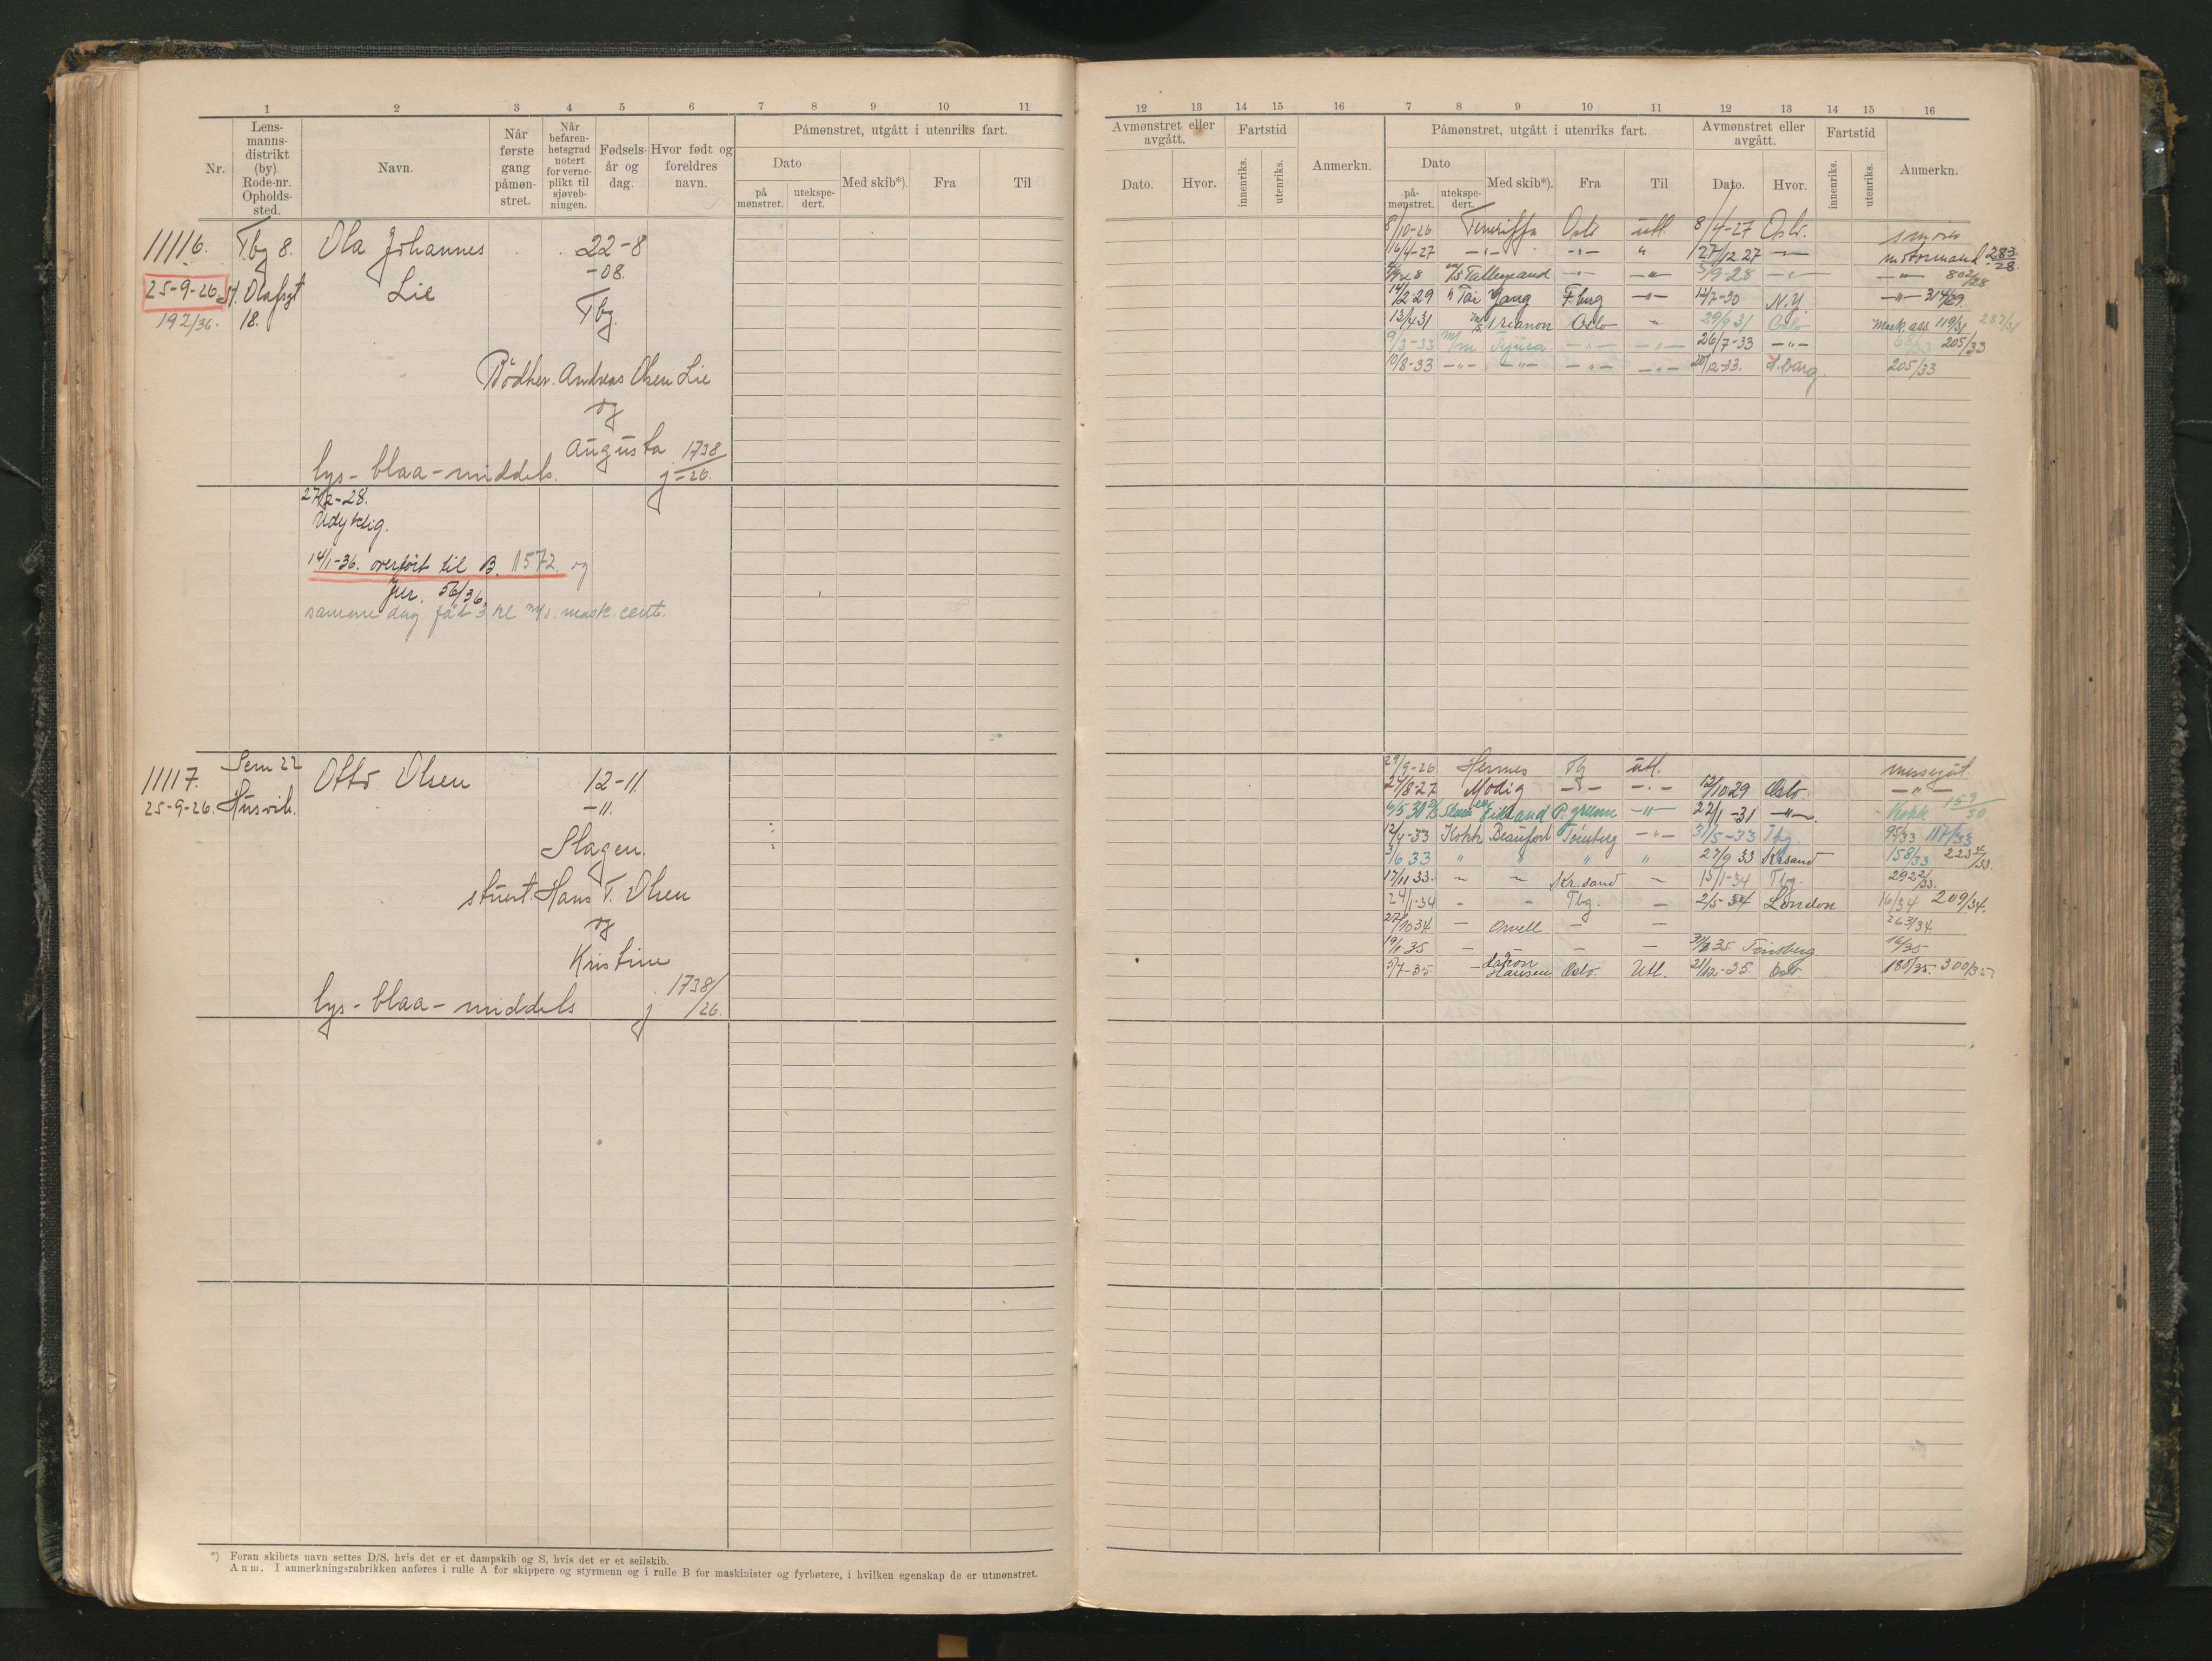 1 2 3 4 5 6 7 8 9 10 11
Nr.
Lens-
manns-
distrikt
(by).
Rode-nr.
Opholds-
sted.
Navn.
Når
første
gang
påmøn-
stret.
Når
befaren-
hetsgrad
notert
for verne-
plikt til
sjøveb-
ningen.
Fødsels-
år og
dag.
Hvor født og
foreldres
navn.
Påmønstret, utgått i utenriks fart.
Dato
på
mønstret.
utekspe-
dert.
Med skib*).
Fra
Til
11116. Tbg 8. Ola Johannes 22-8
25-9-26. St. Olafsgt Lie -08.
192/36. 18. Tbg.
Bødker Andreas Olsen Lie
og
Augusta 1738
lys - blaa - middels. j -26.
27/2-28.
Udyktig.
14/1-36. overført til B. 1572. og
Jnr. 56/36.
samme dag fåt 3 kl m/s. mask. cert.
11117. Sem 22 Otto Olsen 12-11
25-9-26. Husvik. -11.
Slagen.
stuert Hans T. Olsen
og
Kristine
lys - blaa - middels j 1738/26.
*) Foran skibets navn settes D/S, hvis det er et dampskib og S, hvis det er et seilskib.
Anm. I anmerkningsrubrikken anføres i rulle A for skippere og styrmenn og i rulle B for maskinister og fyrbøtere, i hvilken egenskap de er utmønstret.
12 13 14 15 16 7 8 9 10 11 12 13 14 15 16
Avmønstret eller
avgått.
Dato. Hvor.
Fartstid
innenriks. utenriks.
Anmerkn.
Påmønstret, utgått i utenriks fart.
Dato
på-
mønstret.
utekspe-
dert.
Med skib*).
Fra
Til
Avmønstret eller
avgått.
Dato. Hvor.
Fartstid
innenriks. utenriks.
Anmerkn.
8/10-26 Teneriffa Oslo utl. 8/4-27 Oslo. smører
16/4-27 -"- -"- " 27/12 27 -"- motormand 283/28.
m/s Talleyrand -"- -"- 5/9-28 -"- -"- 802/28.
14/2 29 " Tai Yang F.burg -"- 12/7-30 N.Y. -"- 314/29.
13/4 31 m/s Trianon Oslo " 29/9 31 Oslo Mask ass 119/31, 287/31
9/3-33 m/m -"- -"- 26/7-33 -"- 68/33 205/33
10/8-33 -"- -"- -"- -"- 20/12-33. 205/33
29/9-26 Hermes Tbg utl. messegut.
27/8-27 Modig -"- -"- 12/10 29 Oslo. -"-
6/5 30 Eikland P.grunn -"- 22/1-31 -"- Kokk 159/30
12/4-33 Kokk Beaufort Tønsberg -"- 31/5-33 Tbg. 95/33 117/33
3/6 33 " " " " 27/9 33 Kr.sand 158/33 2234/33.
17/11 33. " " Kr.sand " 13/1-34 Tbg. 2922/33.
24/1-34 " " Tbg. " 2/5-34 London 16/34 209/34.
27/10 34. " Orwell " " 263/34.
19/1-35 " " " " Tønsberg 16/35
5/7-35 " Hansen Oslo. Utl. 21/12-35. Oslo 180/35. 300/35.